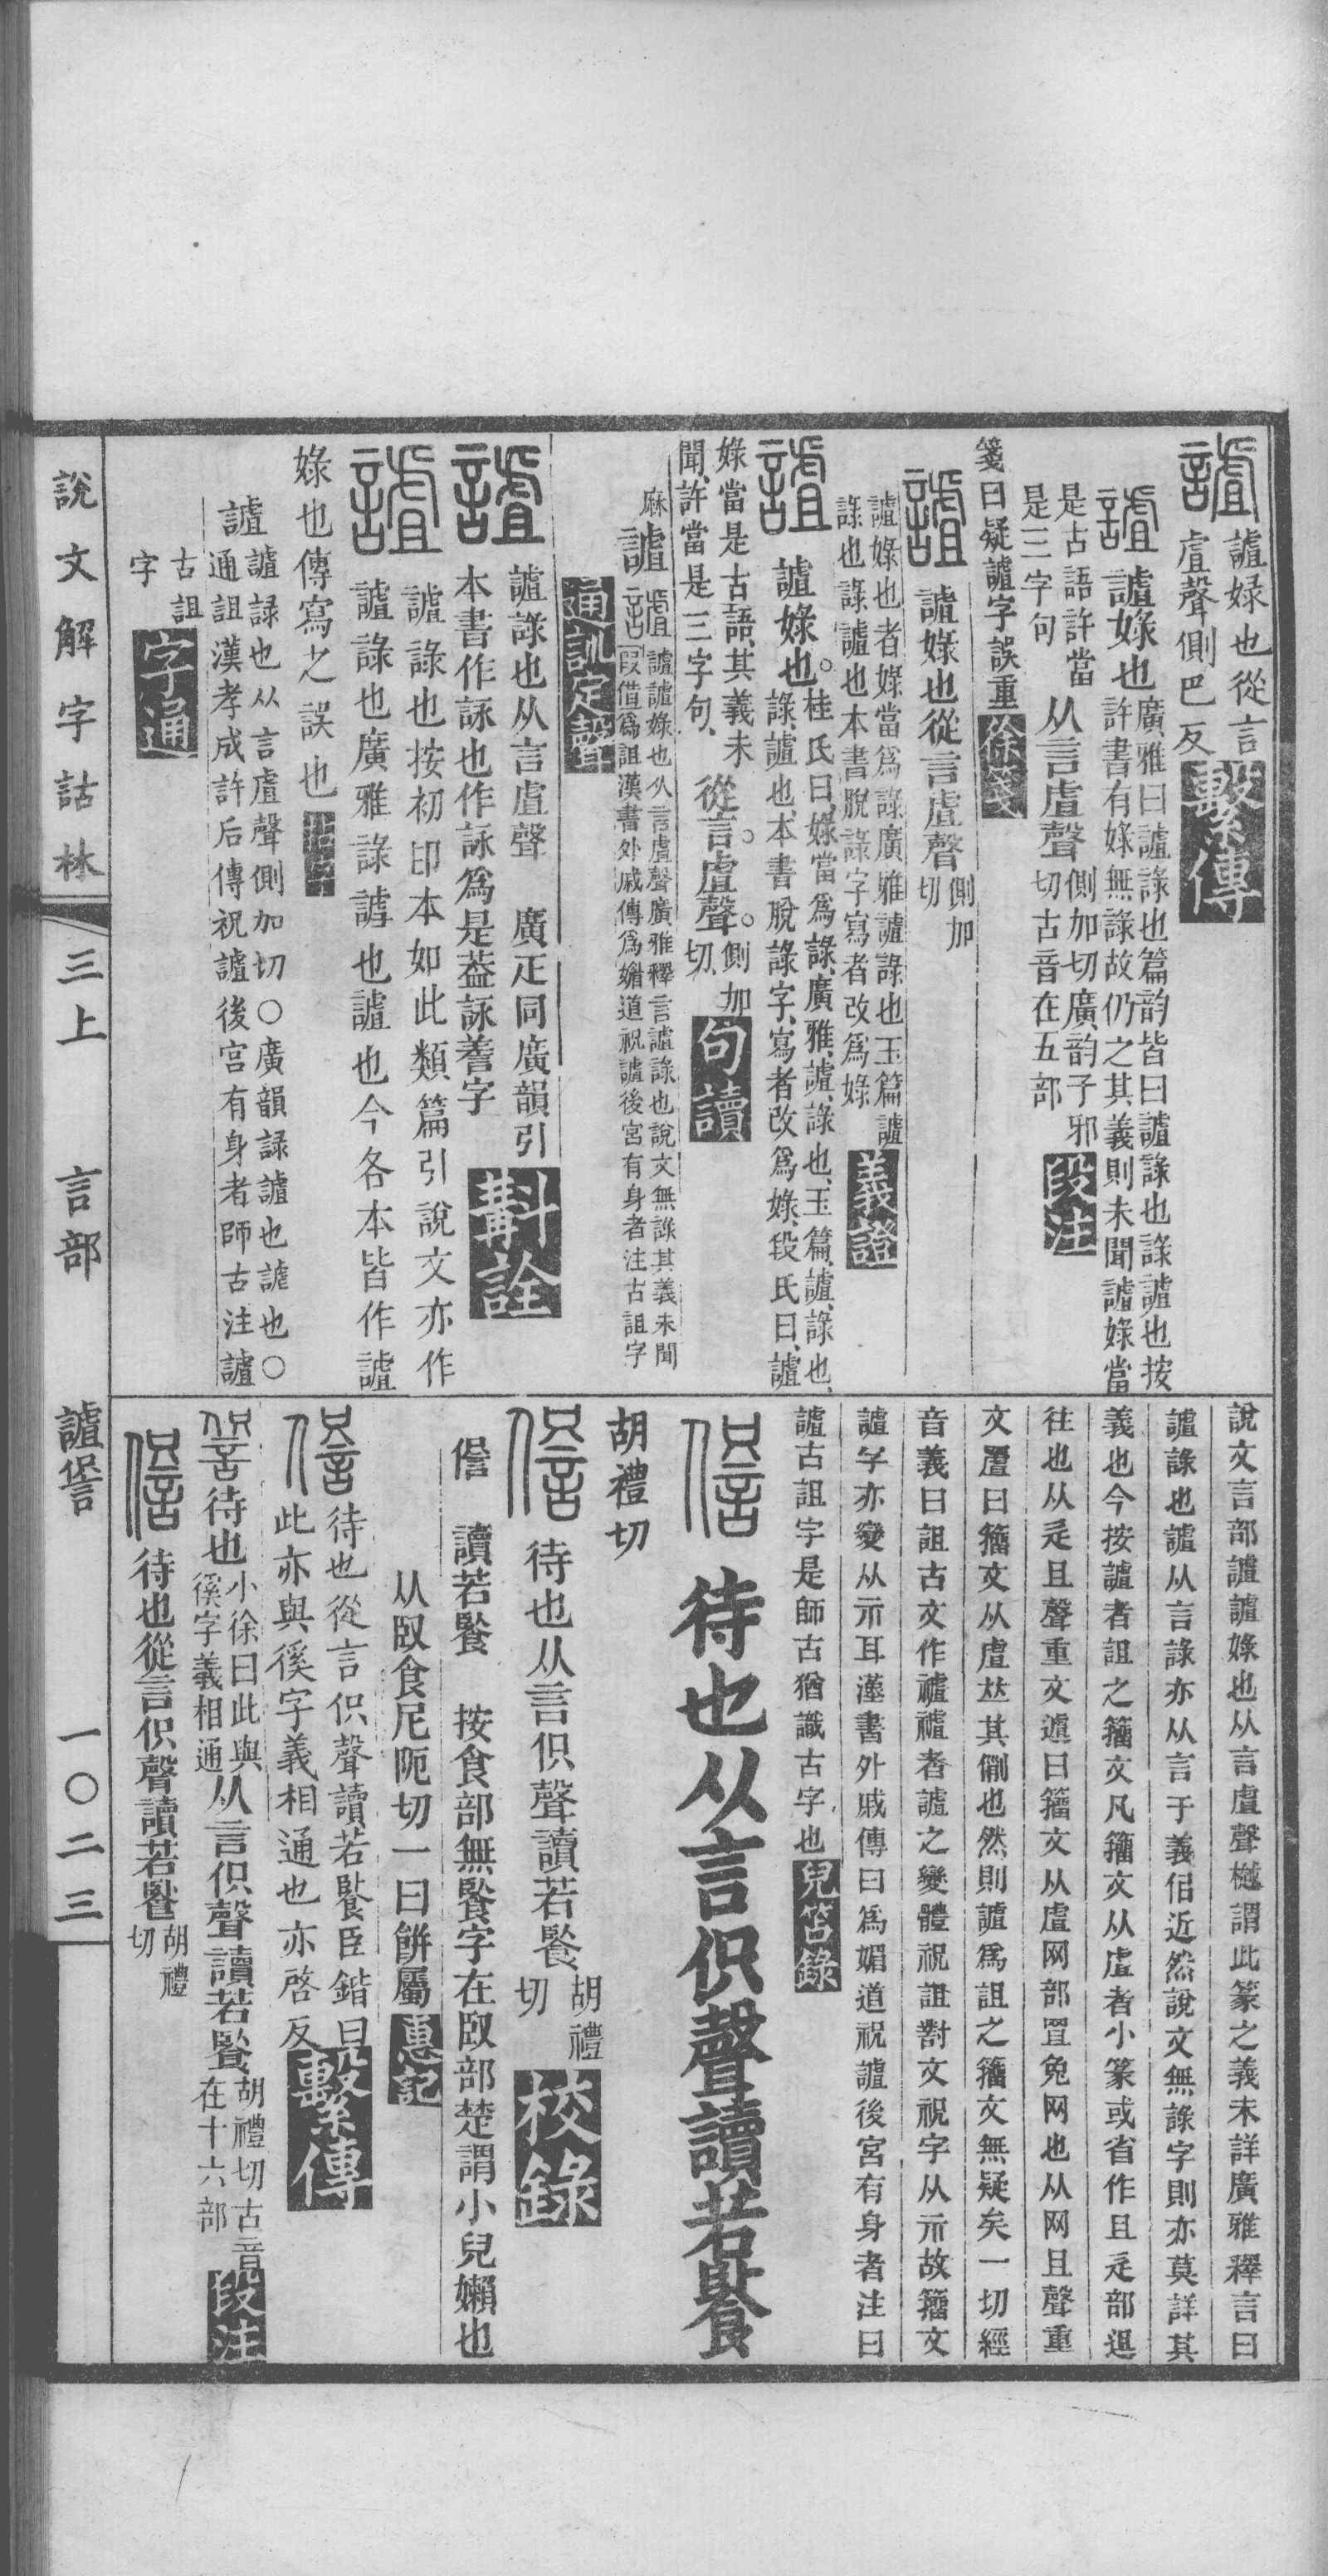 謯娽也從言
虘聲側巴反 繫傳
謯娽也 廣雅曰謯謩也篇韵皆曰謯謩也謩謯也按
許書有娽無謩故仍之其義則未聞謯娽當
是古語許當
是三字句 从言虘聲 側加切廣韵子邪
切古音在五部 段注
箋曰疑謯字誤重 徐箋
謯娽也從言虘聲 側加
切
謯娽也者娽當爲謩廣雅謯謩也玉篇謯
謩也謩謯也本書脫謩字寫者改爲娽 義證
謯娽也。 桂氏曰、娽當爲謩、廣雅、謯、謩也、玉篇、謯、謩也、
謩、謯也、本書脫謩字、寫者改爲娽、段氏曰、謯
娽當是古語、其義未
聞、許當是三字句、 從言。虘聲。 側加
切、 句讀
麻 謯 謯謯娽也从言虘聲廣雅釋言謯謩也說文無謩其義未聞
叚借爲詛漢書外戚傳爲媚道祝謯後宮有身者注古詛字
通訓定聲
謯謩也从言虘聲 廣疋同廣韻引
本書作詠也作詠爲是葢詠諬字 斠詮
謯謩也按初印本如此類篇引說文亦作
謯謩也廣雅謩謯也謯也今各本皆作謯
娽也傳寫之誤也
謯 謯謩也从言虘聲側加切○廣韻謩謯也謯也○
通詛漢孝成許后傳祝謯後宮有身者師古注謯
古詛
字 字通
說文言部謯謯娽也从言虘聲樾謂此篆之義未詳廣雅釋言曰
謯謩也謯从言謩亦从言于義佀近然說文無謩字則亦莫詳其
義也今按謯者詛之籒文凡籒文从虘者小篆或省作且辵部退
往也从辵且聲重文䢐曰籒文从虘网部罝兔网也从网且聲重
文罝曰籒文从虘竝其例也然則謯爲詛之籒文無疑矣一切經
音義曰詛古文作䄍䄍者謯之變體祝詛對文祝字从示故籒文
謯字亦變从示耳漢書外戚傳曰爲媚道祝謯後宮有身者注曰
謯古詛字是師古猶識古字也 兒笘錄
待也从言伿聲讀若餥
胡禮切
待也从言伿聲讀若餥 胡禮
切 校錄
讀若餥 按食部無餥字在臤部楚謂小兒嬾也
从臤食尼阨切一曰餅屬 惠記
待也從言伿聲讀若餥臣鍇曰
此亦與徯字義相通也亦啓反 繫傳
待也 小徐曰此與
徯字義相通 从言伿聲讀若餥 胡禮切古音
在十六部 段注
待也從言伿聲讀若餥 胡禮
切
說文解字詁林 三上 言部 謯䛠 一〇二三